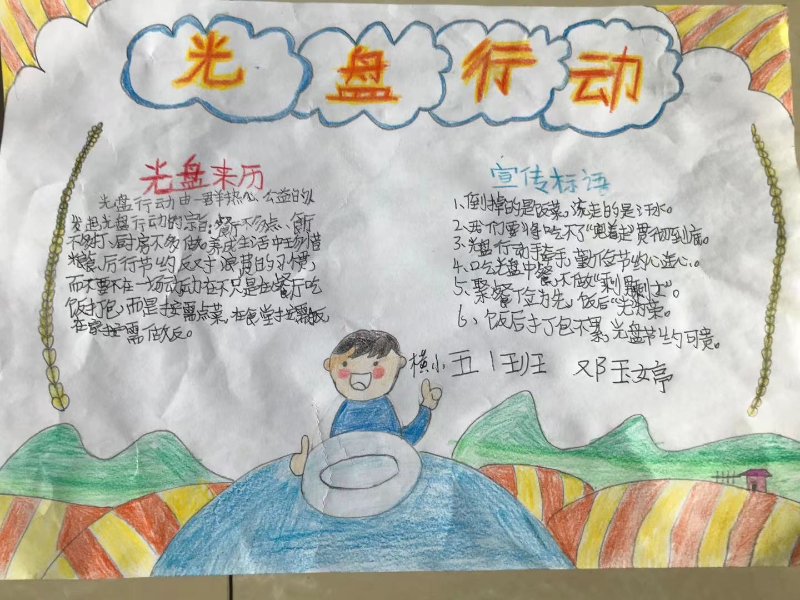 光盘行动
光盘来历
光盘行动由一群热心公益的人
发起光盘行动的宗旨：餐厅不多点、食厅
不多打、厨房不多做。养成生活中珍惜
粮食、厉行节约反对浪费的习惯，
而不要不在一场行动在不只是在餐厅吃
饭打包，而是按需点菜，在食堂按需打饭
在家按需做反。
宣传标语
1、倒掉的是饭菜，流走的是汗水。
2、我们要将"吃不了"兜着走"贯彻到底。
3、光盘行动手牵手，勤俭节约心连心。
4、口吃光盘中餐，不做"剩男剩士"。
5、聚餐俭为先，饭后"光"为荣。
6、饭后打包不累，光盘节约可贵。
横小五1班 邓玉婷